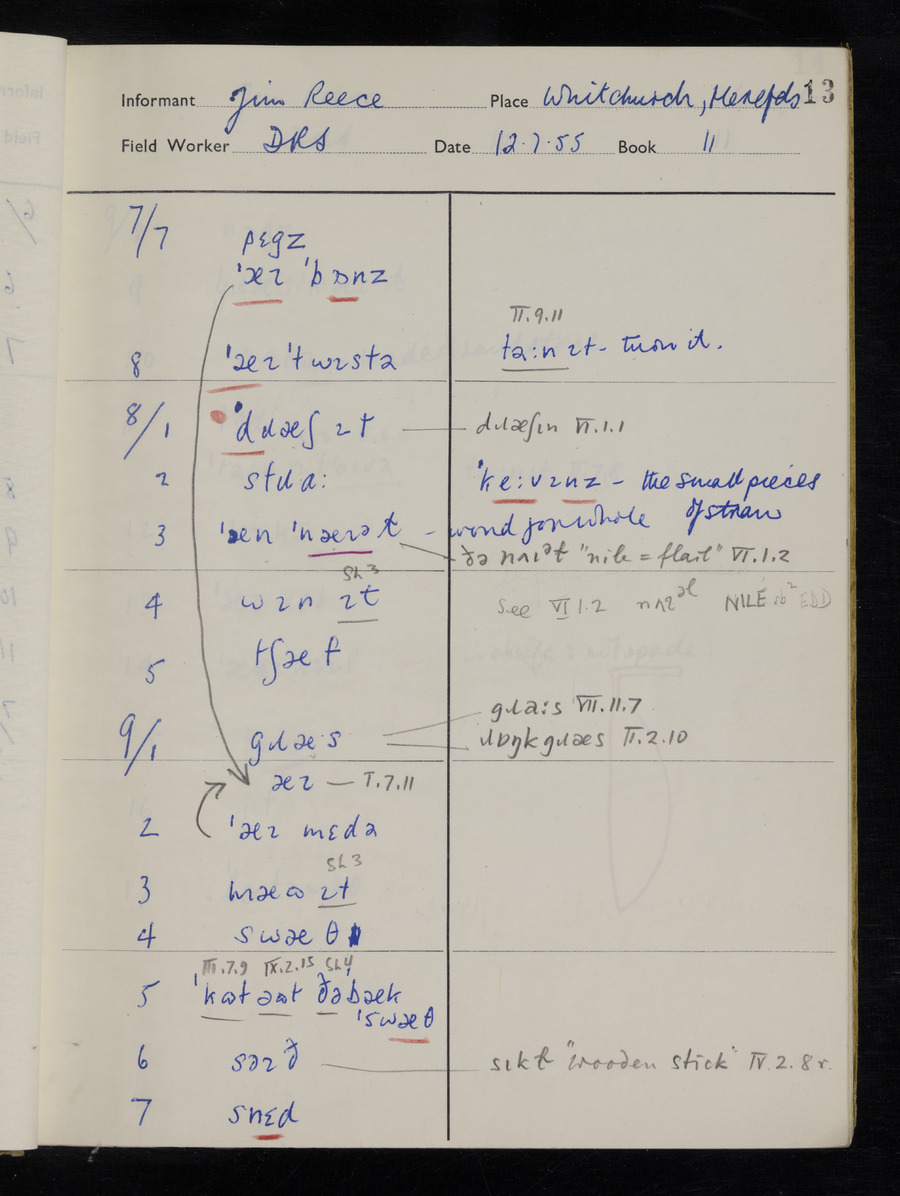 13
Informant Jim Reece Place Whitchurch, Herefds
Field Worker DRS Date 12.7.55 Book 11
7/7 pɛgz
'æɪ 'bɒnz
II.9.11
8 'æɪ 'twɪstə tə:n ɪt - turn it.
8/1 'dɹæʃ ɪt dɹæʃɪn VI.1.1
2 stɹɑ: 'ke:vɪnz - the small pieces of straw
3 'æn 'næɪəɫ - word for whole
ðə nʌɪəɫ "nile = flail" VI.1.2
Sh 3
4 wɪn ɪt See VI 1.2 NILE sb² EDD
5 tʃæf
gɹa:s VII.11.7
9/1 gɹæ·s
ɹɒŋkgɹæs II.2.10
æɪ — I.7.11
2 'æɪ mɛdə
Sh 3
3 ɪt
4 swæθ
III.7.9 IX.2.15 Sh4
5 'kʊt əʊt ðəbæk
'swæθ
6 səɪð sɪkɫ "wooden stick" IV.2.8 r.
7 snɛd